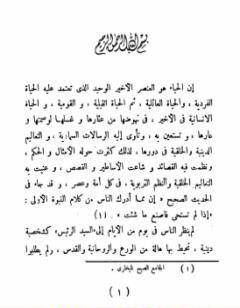 بسم الله الرحمن الرحيم
إن الحياء هو العنصر الأخير الوحيد الذى تعتمد عليه الحياة
الفردية ، والحياة العائلية ، ثم الحياة القبلية ، و القومية ، و الحياة
الانسانية فى الأخير ، فى نهوضها من عثارها و غسلها لوصمتها و
عارها ، و تستعين به ، وتأوى إليه الرسالات السماوية ، و التعاليم
الدينية والخلقية فى دورها ، لذلك كثرت حوله الأمثال و الحكم ،
ونظمت فيه القصائد و شاعت الأساطير و القصص ، و عنيت به
التعاليم الخلقية والنظم التربوية ، فى كل أمة وعصر ، و قد جاء فى
الحديث الصحيح « إن مما أدرك الناس من كلام النبوة الأولى :
«إذا لم تستحى فاصنع ما شئت » . (١)
لم ينظر الناس فى يوم من الأيام إلى«السيد الرئيس» كشخصية
دينية ، تحيط بها هالة من الورع والروحانية والقدس ، ولم يطلبوا
(١) الجامع الصحيح للبخارى .
( ١ )